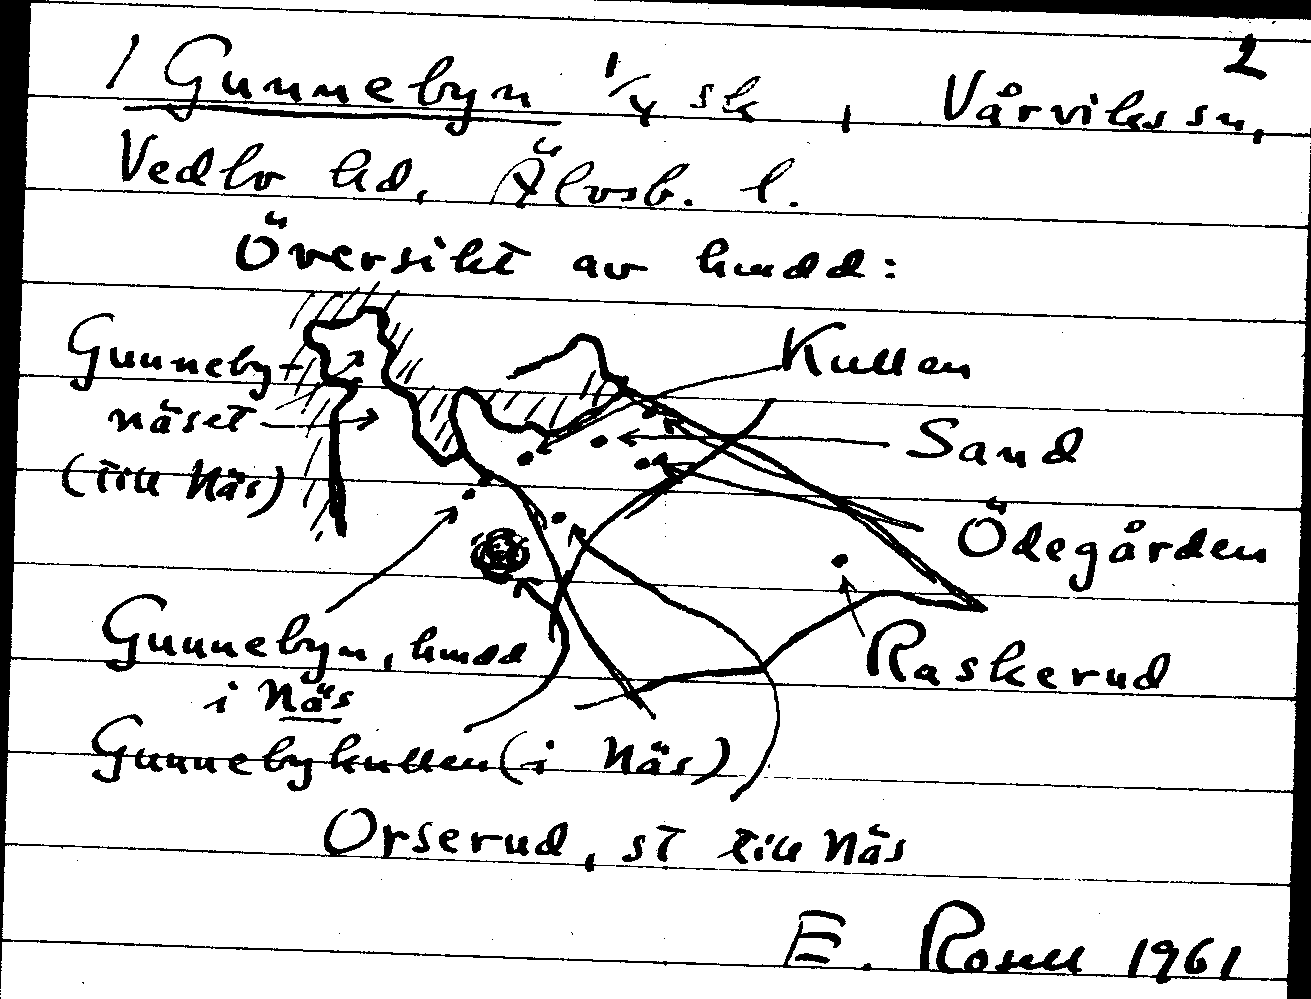 2
1 Gunnebyn 1/4 sk, Vårviks sn,
Vedbo hd, Älvsb. l.
Översikt av hmdd:
Gunneby-
näset
(till Näs)
Kullen
Sand
Ödegården
Gunnebyn, hmdd
i Näs
Raskerud
Gunnebykullen (i Näs)
Orserud, st till Näs
E. Rosell 1961